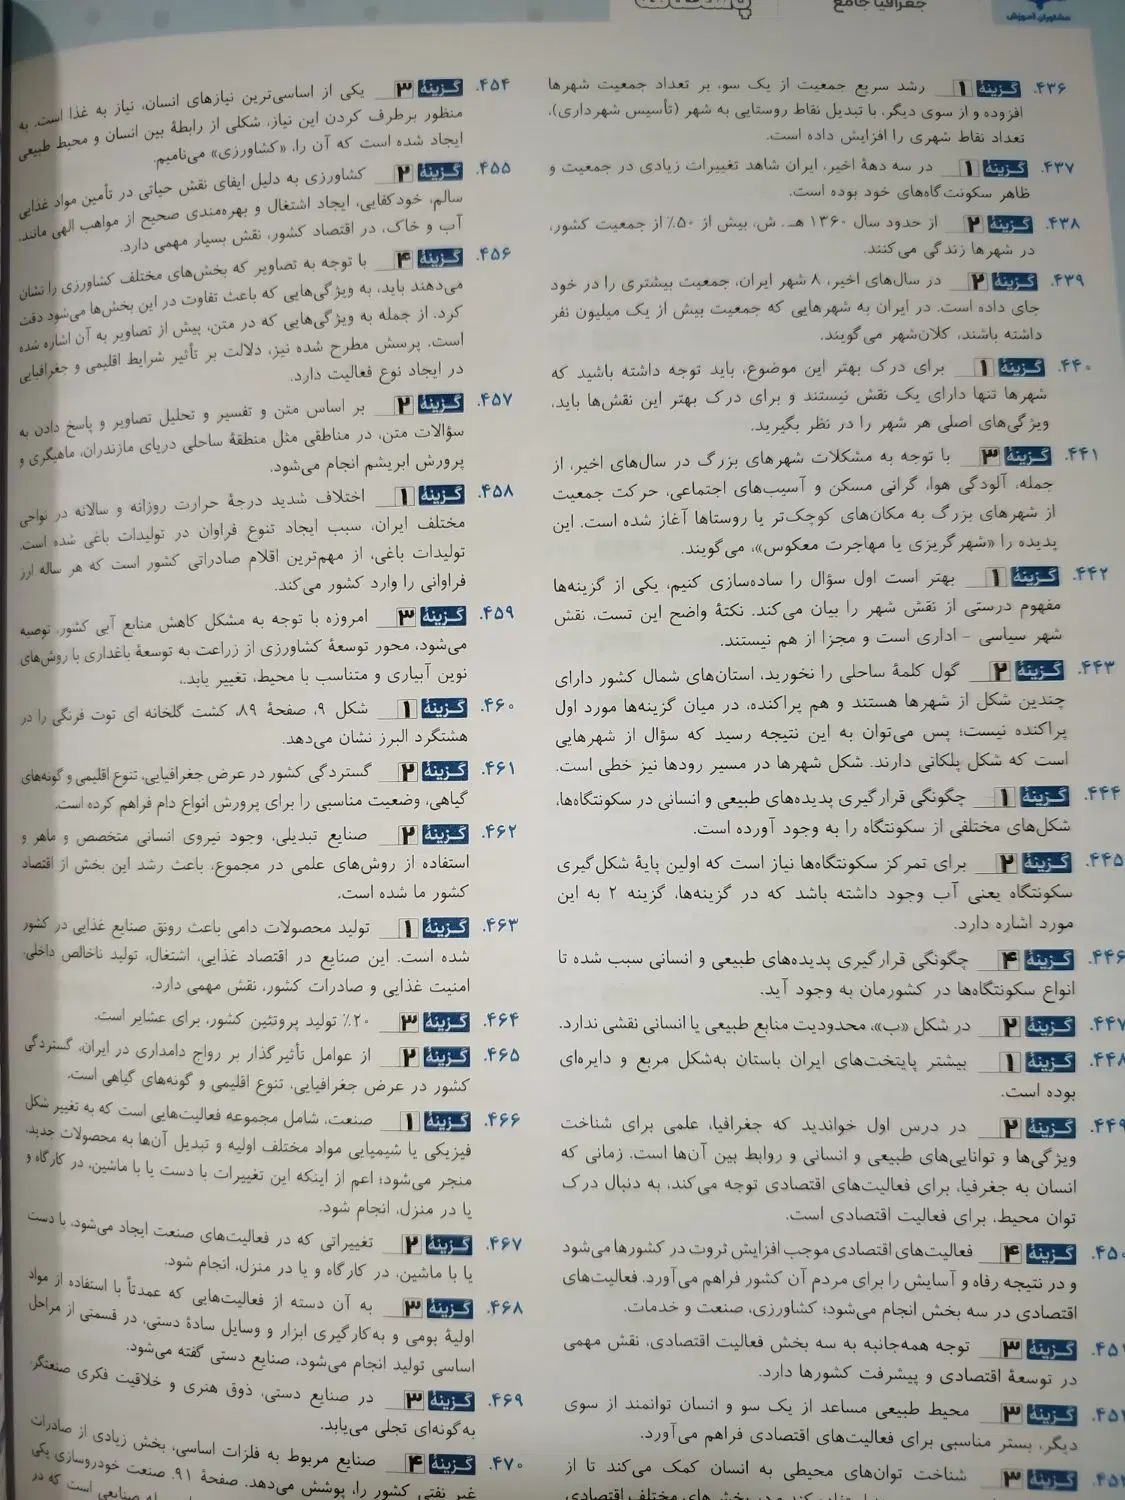 جغرافیا جامع
مشاوران آموزش
۴۳۶. گزینهٔ ۱ رشد سریع جمعیت از یک سو، بر تعداد جمعیت شهرها
افزوده و از سوی دیگر، با تبدیل نقاط روستایی به شهر (تأسیس شهرداری)،
تعداد نقاط شهری را افزایش داده است.
۴۳۷. گزینهٔ ۱ در سه دههٔ اخیر، ایران شاهد تغییرات زیادی در جمعیت و
ظاهر سکونت‌گاه‌های خود بوده است.
۴۳۸. گزینهٔ ۲ از حدود سال ۱۳۶۰ هـ. ش، بیش از ۵۰٪ از جمعیت کشور،
در شهرها زندگی می‌کنند.
۴۳۹. گزینهٔ ۲ در سال‌های اخیر، ۸ شهر ایران، جمعیت بیشتری را در خود
جای داده است. در ایران به شهرهایی که جمعیت بیش از یک میلیون نفر
داشته باشند، کلان‌شهر می‌گویند.
۴۴۰. گزینهٔ ۱ برای درک بهتر این موضوع، باید توجه داشته باشید که
شهرها تنها دارای یک نقش نیستند و برای درک بهتر این نقش‌ها باید،
ویژگی‌های اصلی هر شهر را در نظر بگیرید.
۴۴۱. گزینهٔ ۳ با توجه به مشکلات شهرهای بزرگ در سال‌های اخیر، از
جمله، آلودگی هوا، گرانی مسکن و آسیب‌های اجتماعی، حرکت جمعیت
از شهرهای بزرگ به مکان‌های کوچک‌تر یا روستاها آغاز شده است. این
پدیده را «شهرگریزی یا مهاجرت معکوس»، می‌گویند.
۴۴۲. گزینهٔ ۱ بهتر است اول سؤال را ساده‌سازی کنیم، یکی از گزینه‌ها
مفهوم درستی از نقش شهر را بیان می‌کند. نکتهٔ واضح این تست، نقش
شهر سیاسی - اداری است و مجزا از هم نیستند.
۴۴۳. گزینهٔ ۲ گول کلمهٔ ساحلی را نخورید، استان‌های شمال کشور دارای
چندین شکل از شهرها هستند و هم پراکنده، در میان گزینه‌ها مورد اول
پراکنده نیست؛ پس می‌توان به این نتیجه رسید که سؤال از شهرهایی
است که شکل پلکانی دارند. شکل شهرها در مسیر رودها نیز خطی است.
۴۴۴. گزینهٔ ۱ چگونگی قرارگیری پدیده‌های طبیعی و انسانی در سکونتگاه‌ها،
شکل‌های مختلفی از سکونتگاه را به وجود آورده است.
۴۴۵. گزینهٔ ۲ برای تمرکز سکونتگاه‌ها نیاز است که اولین پایهٔ شکل‌گیری
سکونتگاه یعنی آب وجود داشته باشد که در گزینه‌ها، گزینه ۲ به این
مورد اشاره دارد.
۴۴۶. گزینهٔ ۴ چگونگی قرارگیری پدیده‌های طبیعی و انسانی سبب شده تا
انواع سکونتگاه‌ها در کشورمان به وجود آید.
۴۴۷. گزینهٔ ۲ در شکل «ب»، محدودیت منابع طبیعی یا انسانی نقشی ندارد.
۴۴۸. گزینهٔ ۱ بیشتر پایتخت‌های ایران باستان به‌شکل مربع و دایره‌ای
بوده است.
۴۴۹. گزینهٔ ۲ در درس اول خواندید که جغرافیا، علمی برای شناخت
ویژگی‌ها و توانایی‌های طبیعی و انسانی و روابط بین آن‌ها است. زمانی که
انسان به جغرافیا، برای فعالیت‌های اقتصادی توجه می‌کند، به دنبال درک
توان محیط، برای فعالیت اقتصادی است.
۴۵۰. گزینهٔ ۴ فعالیت‌های اقتصادی موجب افزایش ثروت در کشورها می‌شود
و در نتیجه رفاه و آسایش را برای مردم آن کشور فراهم می‌آورد. فعالیت‌های
اقتصادی در سه بخش انجام می‌شود؛ کشاورزی، صنعت و خدمات.
۴۵۱. گزینهٔ ۳ توجه همه‌جانبه به سه بخش فعالیت اقتصادی، نقش مهمی
در توسعهٔ اقتصادی و پیشرفت کشورها دارد.
۴۵۲. گزینهٔ ۳ محیط طبیعی مساعد از یک سو و انسان توانمند از سوی
دیگر، بستر مناسبی برای فعالیت‌های اقتصادی فراهم می‌آورد.
گزینهٔ ۳ شناخت توان‌های محیطی به انسان کمک می‌کند تا از
در بخش‌های مختلف اقتصادی
۴۵۴. گزینهٔ ۳ یکی از اساسی‌ترین نیازهای انسان، نیاز به غذا است. به
منظور برطرف کردن این نیاز، شکلی از رابطهٔ بین انسان و محیط طبیعی
ایجاد شده است که آن را، «کشاورزی» می‌نامیم.
۴۵۵. گزینهٔ ۲ کشاورزی به دلیل ایفای نقش حیاتی در تأمین مواد غذایی
سالم، خودکفایی، ایجاد اشتغال و بهره‌مندی صحیح از مواهب الهی مانند،
آب و خاک، در اقتصاد کشور، نقش بسیار مهمی دارد.
۴۵۶. گزینهٔ ۴ با توجه به تصاویر که بخش‌های مختلف کشاورزی را نشان
می‌دهند باید، به ویژگی‌هایی که باعث تفاوت در این بخش‌ها می‌شود دقت
کرد. از جمله به ویژگی‌هایی که در متن، پیش از تصاویر به آن اشاره شده
است. پرسش مطرح شده نیز، دلالت بر تأثیر شرایط اقلیمی و جغرافیایی
در ایجاد نوع فعالیت دارد.
۴۵۷. گزینهٔ ۲ بر اساس متن و تفسیر و تحلیل تصاویر و پاسخ دادن به
سؤالات متن، در مناطقی مثل منطقهٔ ساحلی دریای مازندران، ماهیگری و
پرورش ابریشم انجام می‌شود.
۴۵۸. گزینهٔ ۱ اختلاف شدید درجهٔ حرارت روزانه و سالانه در نواحی
مختلف ایران، سبب ایجاد تنوع فراوان در تولیدات باغی شده است.
تولیدات باغی، از مهم‌ترین اقلام صادراتی کشور است که هر ساله ارز
فراوانی را وارد کشور می‌کند.
۴۵۹. گزینهٔ ۳ امروزه با توجه به مشکل کاهش منابع آبی کشور، توصیه
می‌شود، محور توسعهٔ کشاورزی از زراعت به توسعهٔ باغداری با روش‌های
نوین آبیاری و متناسب با محیط، تغییر یابد..
۴۶۰. گزینهٔ ۱ شکل ۹، صفحهٔ ۸۹، کشت گلخانه ای توت فرنگی را در
هشتگرد البرز نشان می‌دهد.
۴۶۱. گزینهٔ ۲ گستردگی کشور در عرض جغرافیایی، تنوع اقلیمی و گونه‌های
گیاهی، وضعیت مناسبی را برای پرورش انواع دام فراهم کرده است.
۴۶۲. گزینهٔ ۲ صنایع تبدیلی، وجود نیروی انسانی متخصص و ماهر و
استفاده از روش‌های علمی در مجموع، باعث رشد این بخش از اقتصاد
کشور ما شده است.
۴۶۳. گزینهٔ ۱ تولید محصولات دامی باعث رونق صنایع غذایی در کشور
شده است. این صنایع در اقتصاد غذایی، اشتغال، تولید ناخالص داخلی،
امنیت غذایی و صادرات کشور، نقش مهمی دارد.
۴۶۴. گزینهٔ ۳ ۲۰٪ تولید پروتئین کشور، برای عشایر است.
۴۶۵. گزینهٔ ۲ از عوامل تأثیرگذار بر رواج دامداری در ایران، گستردگی
کشور در عرض جغرافیایی، تنوع اقلیمی و گونه‌های گیاهی است.
۴۶۶. گزینهٔ ۱ صنعت، شامل مجموعه فعالیت‌هایی است که به تغییر شکل
فیزیکی یا شیمیایی مواد مختلف اولیه و تبدیل آن‌ها به محصولات جدید،
منجر می‌شود؛ اعم از اینکه این تغییرات با دست یا با ماشین، در کارگاه و
یا در منزل، انجام شود.
۴۶۷. گزینهٔ ۲ تغییراتی که در فعالیت‌های صنعت ایجاد می‌شود، با دست
یا با ماشین، در کارگاه و یا در منزل، انجام شود.
۴۶۸. گزینهٔ ۳ به آن دسته از فعالیت‌هایی که عمدتاً با استفاده از مواد
اولیهٔ بومی و به‌کارگیری ابزار و وسایل سادهٔ دستی، در قسمتی از مراحل
اساسی تولید انجام می‌شود، صنایع دستی گفته می‌شود.
۴۶۹. گزینهٔ ۳ در صنایع دستی، ذوق هنری و خلاقیت فکری صنعتگر،
به‌گونه‌ای تجلی می‌یابد.
۴۷۰. گزینهٔ ۴ صنایع مربوط به فلزات اساسی، بخش زیادی از صادرات
غیر نفتی کشور را، پوشش می‌دهد. صفحهٔ ۹۱. صنعت خودروسازی یکی
صنایعی است که در